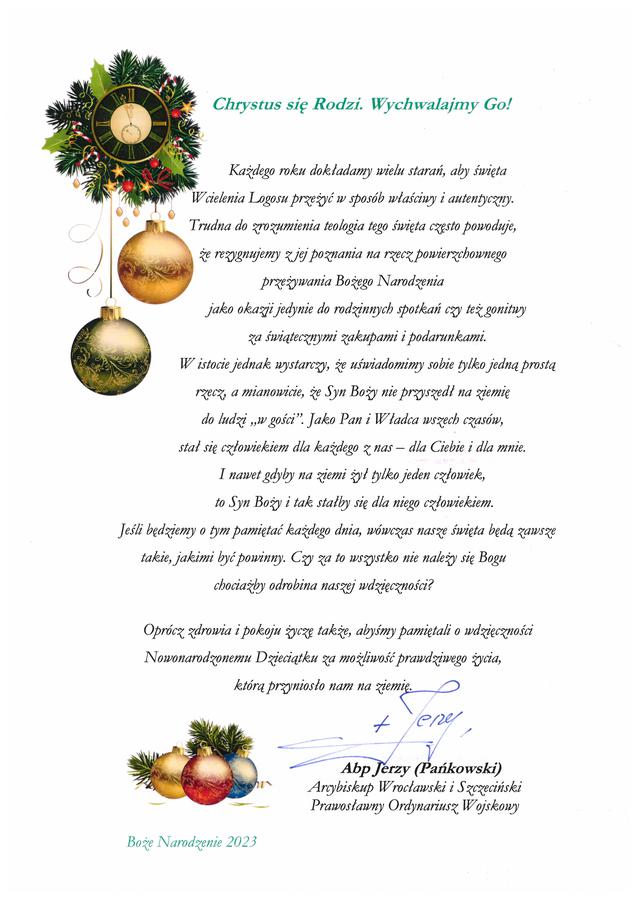 Chrystus się Rodzi. Wychwalajmy Go!
Każdego roku dokładamy wielu starań, aby święta
Wcielenia Logosu przeżyć w sposób właściwy i autentyczny.
Trudna do zrozumienia teologia tego święta często powoduje,
że rezygnujemy z jej poznania na rzecz powierzchownego
przeżywania Bożego Narodzenia
jako okazji jedynie do rodzinnych spotkań czy też gonitwy
za świątecznymi zakupami i podarunkami.
W istocie jednak wystarczy, że uświadomimy sobie tylko jedną prostą
rzecz, a mianowicie, że Syn Boży nie przyszedł na ziemię
do ludzi „w gości”. Jako Pan i Władca wszech czasów,
stał się człowiekiem dla każdego z nas – dla Ciebie i dla mnie.
I nawet gdyby na ziemi żył tylko jeden człowiek,
to Syn Boży i tak stałby się dla niego człowiekiem.
Jeśli będziemy o tym pamiętać każdego dnia, wówczas nasze święta będą zawsze
takie, jakimi być powinny. Czy za to wszystko nie należy się Bogu
chociażby odrobina naszej wdzięczności?
Oprócz zdrowia i pokoju życzę także, abyśmy pamiętali o wdzięczności
Nowonarodzonemu Dzieciątku za możliwość prawdziwego życia,
którą przyniosło nam na ziemię.
+ Jerzy
Abp Jerzy (Pańkowski)
Arcybiskup Wrocławski i Szczeciński
Prawosławny Ordynariusz Wojskowy
Boże Narodzenie 2023